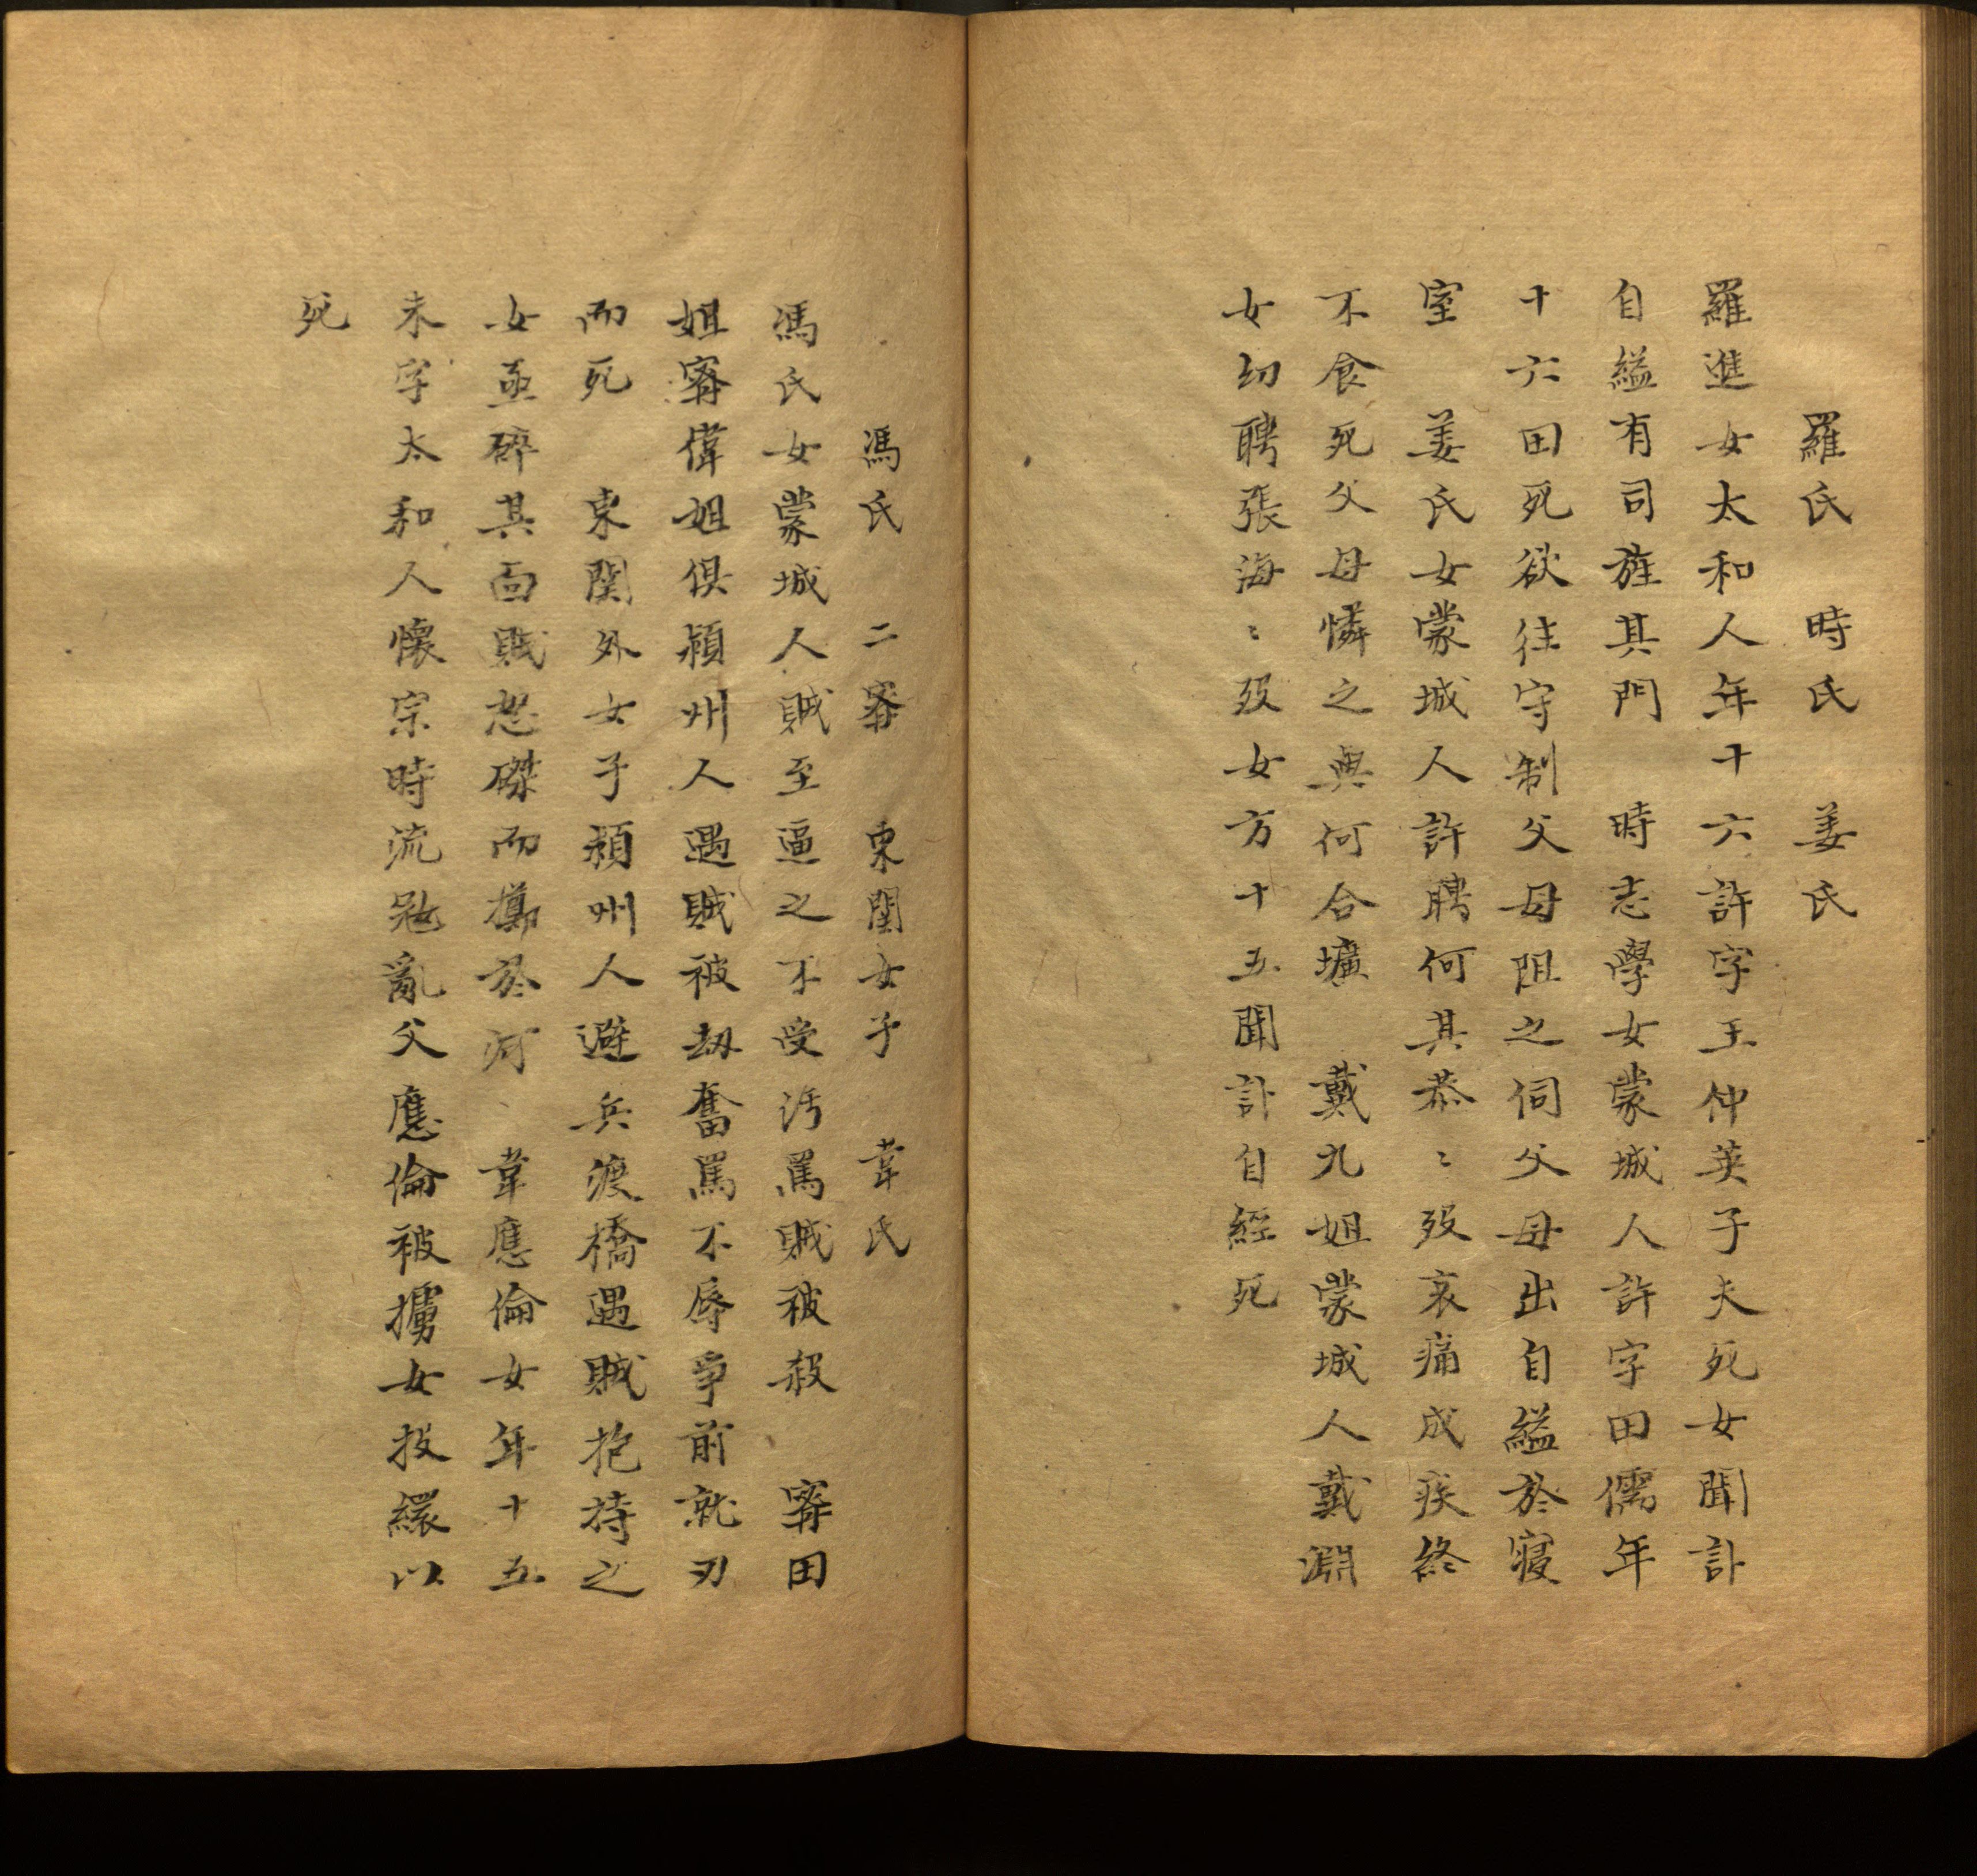 羅氏　時氏　姜氏
羅進女太和人年十六許字王仲英子夫死女聞訃
自縊有司旌其門　時志學女蒙城人許字田儒年
十六田死欲往守制父母阻之伺父母出自縊於寢
室　姜氏女蒙城人許聘何其恭〻歿哀痛成疾終
不食死父母憐之與何合壙　戴九姐蒙城人戴淵
女幼聘張海〻歿女方十五聞訃自經死
馮氏　二甯　東關女子　韋氏
馮氏女蒙城人賊至逼之不受汚罵賊被殺　甯田
姐甯偉姐俱潁州人遇賊被劫奮罵不辱爭前就刃
而死　東関外女子潁州人避兵渡橋遇賊抱持之
女亟碎其面賊怒磔而擲於河　韋應倫女年十五
未字太和人懷宗時流冦亂父應倫被擄女投繯以
死